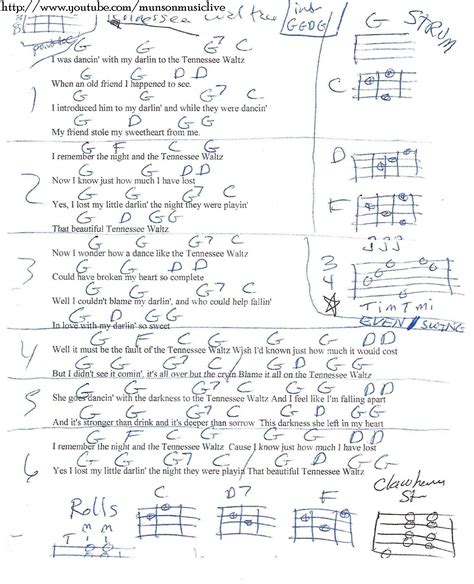 http://www.youtube.com/munsonmusiclive
Tennessee Waltz
G STRUM
GEDG
G G G7 C
I was dancin' with my darlin to the Tennessee Waltz
G G D D
When an old friend I happened to see.
C
1
G G G7 C
I introduced him to my darlin' and while they were dancin'
G D G G
My friend stole my sweetheart from me.
G F G C
I remember the night and the Tennessee Waltz
D
G G D D
2
Now I know just how much I have lost
G G G7 C
Yes, I lost my little darlin' the night they were playin'
F
G D G G
That beautiful Tennessee Waltz
G G G7 C
Now I wonder how a dance like the Tennessee Waltz
3
G G D D
Could have broken my heart so complete
3
4
G G G7 C
Well I couldn't blame my darlin, and who could help fallin'
T i m T m i
G D G G
EVEN / SWING
In love with my darlin' so sweet
G F G C G G D D
4
Well it must be the fault of the Tennessee Waltz Wjsh I'd known just how much it would cost
G G G7 C G D G G
But I didn't see it comin', it's all over but the cryn Blame it all on the Tennessee Waltz
G G G7 C G G D D
5
She goes dancin' with the darkness to the Tennessee Waltz And I feel like I'm falling apart
G G G7 C G D G G
And it's stronger than drink and it's deeper than sorrow This darkness she left in my heart
G F G C G G D D
I remember the night and the Tennessee Waltz Cause I know just how much I have lost
6
G G G7 C G D G G
Yes I lost my little darlin' the night they were playin That beautiful Tennessee Waltz
Rolls
C
D7
F
T
m m